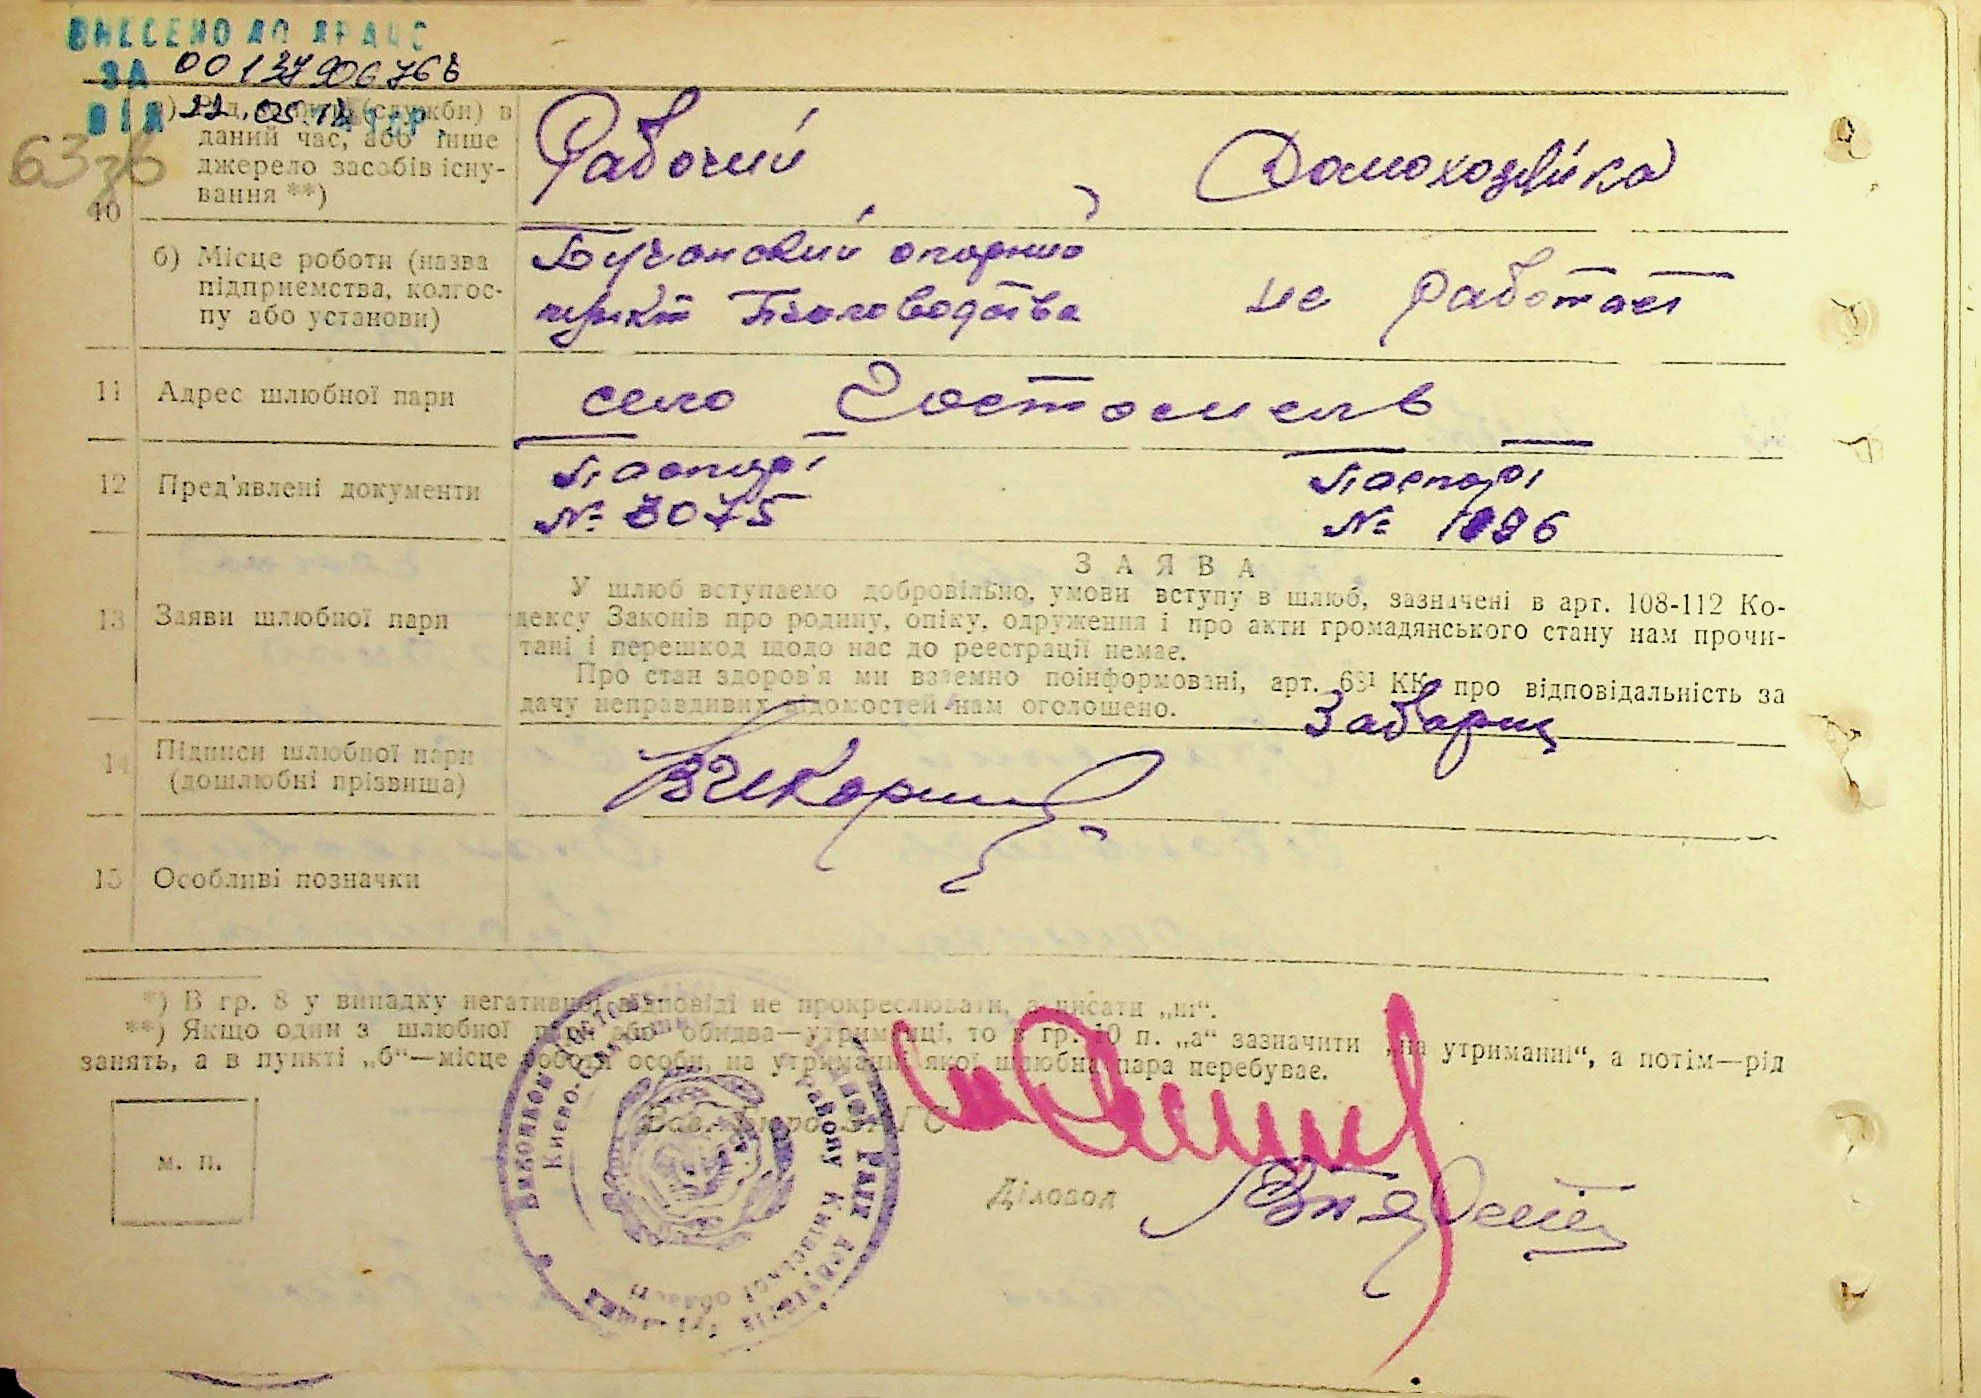 ВНЕСЕНО ДО ДРАЦС
ЗА 00137906768
ВІД 22.05.
63зв
(служби) в
даний час, або інше
джерело засобів існу-
вання **)
Рабочий
Домохозяйка
10
б) Місце роботи (назва
підприємства, колгос-
пу або установи)
Бучанский опорний
пункт Пчоловодства
не работает
11 Адрес шлюбної пари
село Гостомель
12 Пред'явлені документи
Паспорт
№ 3075
Паспорт
№
ЗАЯВА
13 Заяви шлюбної пари
У шлюб вступаємо добровільно, умови вступу в шлюб, зазначені в арт. 108-112 Ко-
дексу Законів про родину, опіку, одруження і про акти громадянського стану нам прочи-
тані і перешкод щодо нас до реєстрації немає.
Про стан здоров'я ми взаємно поінформовані, арт. КК про відповідальність за
дачу неправдивих відомостей нам оголошено.
14 Підписи шлюбної пари
(дошлюбні прізвища)
15 Особливі позначки
*) В гр. 8 у випадку негативної відповіді не прокреслювати, а писати „ні“.
**) Якщо один з шлюбної пари або обидва—утриманці, то в гр. 10 п. „а“ зазначити „на утриманні“, а потім—рід
занять, а в пункті „б“—місце роботи особи, на утриманні якої шлюбна пара перебуває.
Зав. Бюро ЗАГС
м. п.
Діловод
Виконком
Києво-
району Київської області
Ради депутатів трудящих